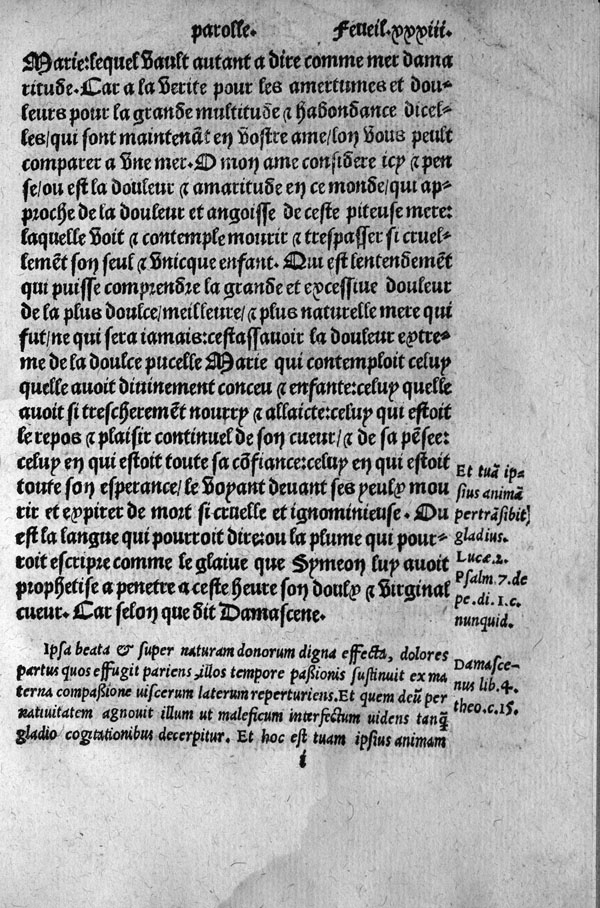 parolle. Feueil.xxxiii.
Marie:lequel vault autant a dire comme mer dama
ritude.Car a la verite pour les amertumes et dou-
leurs pour la grande multitude ⁊ habondance dicel-
les/qui sont maintenāt en vostre ame/lon vous peult
comparer a vne mer.O mon ame considere icy ⁊ pen
se/ou est la douleur ⁊ amaritude en ce monde/qui ap-
proche de la douleur et angoisse de ceste piteuse mere:
laquelle voit ⁊ contemple mourir ⁊ trespasser si cruel-
lemēt son seul ⁊ vnicque enfant. Qui est lentendement
qui puisse comprendre la grande et excessiue douleur
de la plus doulce/meilleure/⁊ plus naturelle mere qui
fut/ne qui sera iamais:cestassauoir la douleur extre-
me de la doulce pucelle Marie qui contemploit celuy
quelle auoit diuinement conceu ⁊ enfante:celuy quelle
auoit si trescheremēt nourry ⁊ allaicte:celuy qui estoit
le repos ⁊ plaisir continuel de son cueur/⁊ de sa pēsee:
celuy en qui estoit toute sa cōfiance:celuy en qui estoit
toute son esperance/le voyant deuant ses yeulx mou
rir et expirer de mort si cruelle et ignominieuse. Ou
est la langue qui pourroit dire:ou la plume qui pour-
roit escripre comme le glaiue que Symeon luy auoit
prophetise a penetre a ceste heure son doulx ⁊ virginal
cueur. Car selon que dit Damascene.
Et tuā ip-
sius animā
pertrāsibit
gladius.
Lucæ.2.
Psalm.7.de
pe.di.1.c.
nunquid.
Ipsa beata & super naturam donorum digna effecta, dolores
partus quos effugit pariens,illos tempore paßionis sustinuit ex ma
terna compaßione uiscerum laterum reperturiens.Et quem deū per
natiuitatem agnouit illum ut maleficum interfectum uidens tanq̄
gladio cogitationibus decerpitur. Et hoc est tuam ipsius animam
Damasce-
nus lib.4.
theo.c.15.
i